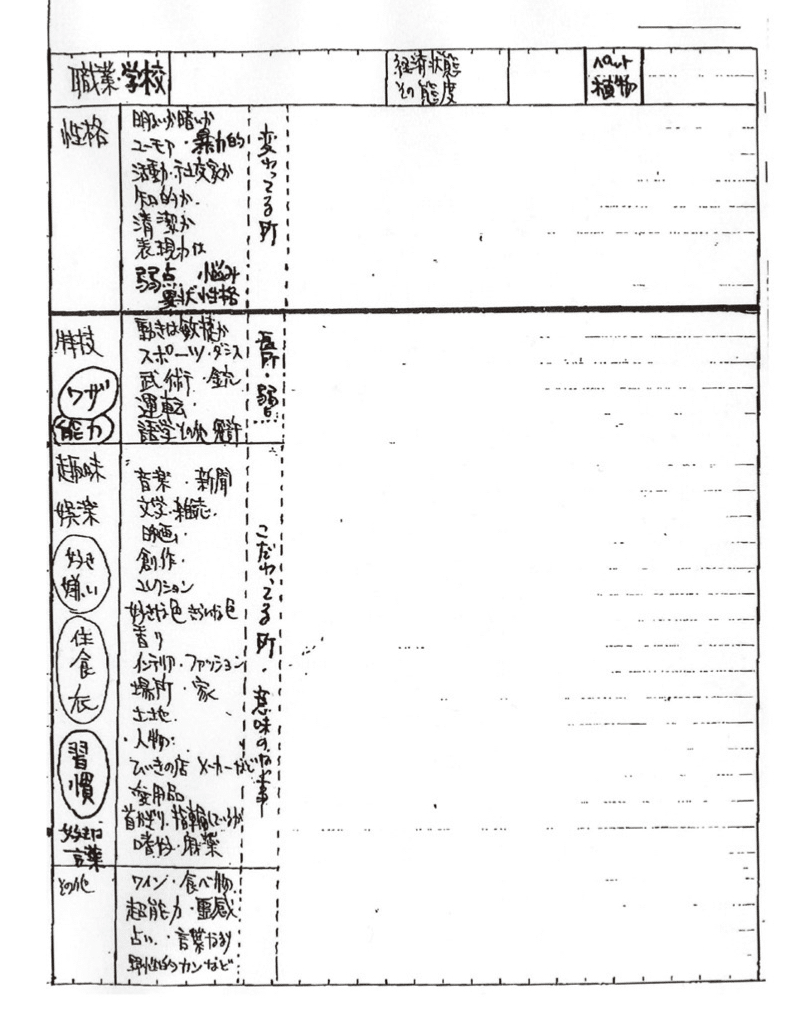 職業・学校
経済状態
その態度
ペット
植物
性格
明るいか暗いか
ユーモア・暴力的
活動・社交家か
知的か.
清潔か
表現力は
弱点 悩み
異状性格
変わってる所
特技
ワザ
能力
動きは敏捷か
スポーツ・ダンス
武術・銃
運転
語学その他 免許
長所・弱点
趣味
娯楽
好き
嫌い
住
食
衣
習
慣
好きな
言葉
音楽・新聞
文学・雑誌.
映画.
創作・
コレクション
好きな色 きらいな色
香り
インテリア・ファッション
場所・家
土地
・人物・
ひいきの店 メーカーなど
愛用品
首かざり・指輪しているか
嗜好・麻薬
こだわってる所・意味のない事
その他
ワイン・食べ物.
超能力・霊感
占い.・言葉なまり
野性的カンなど